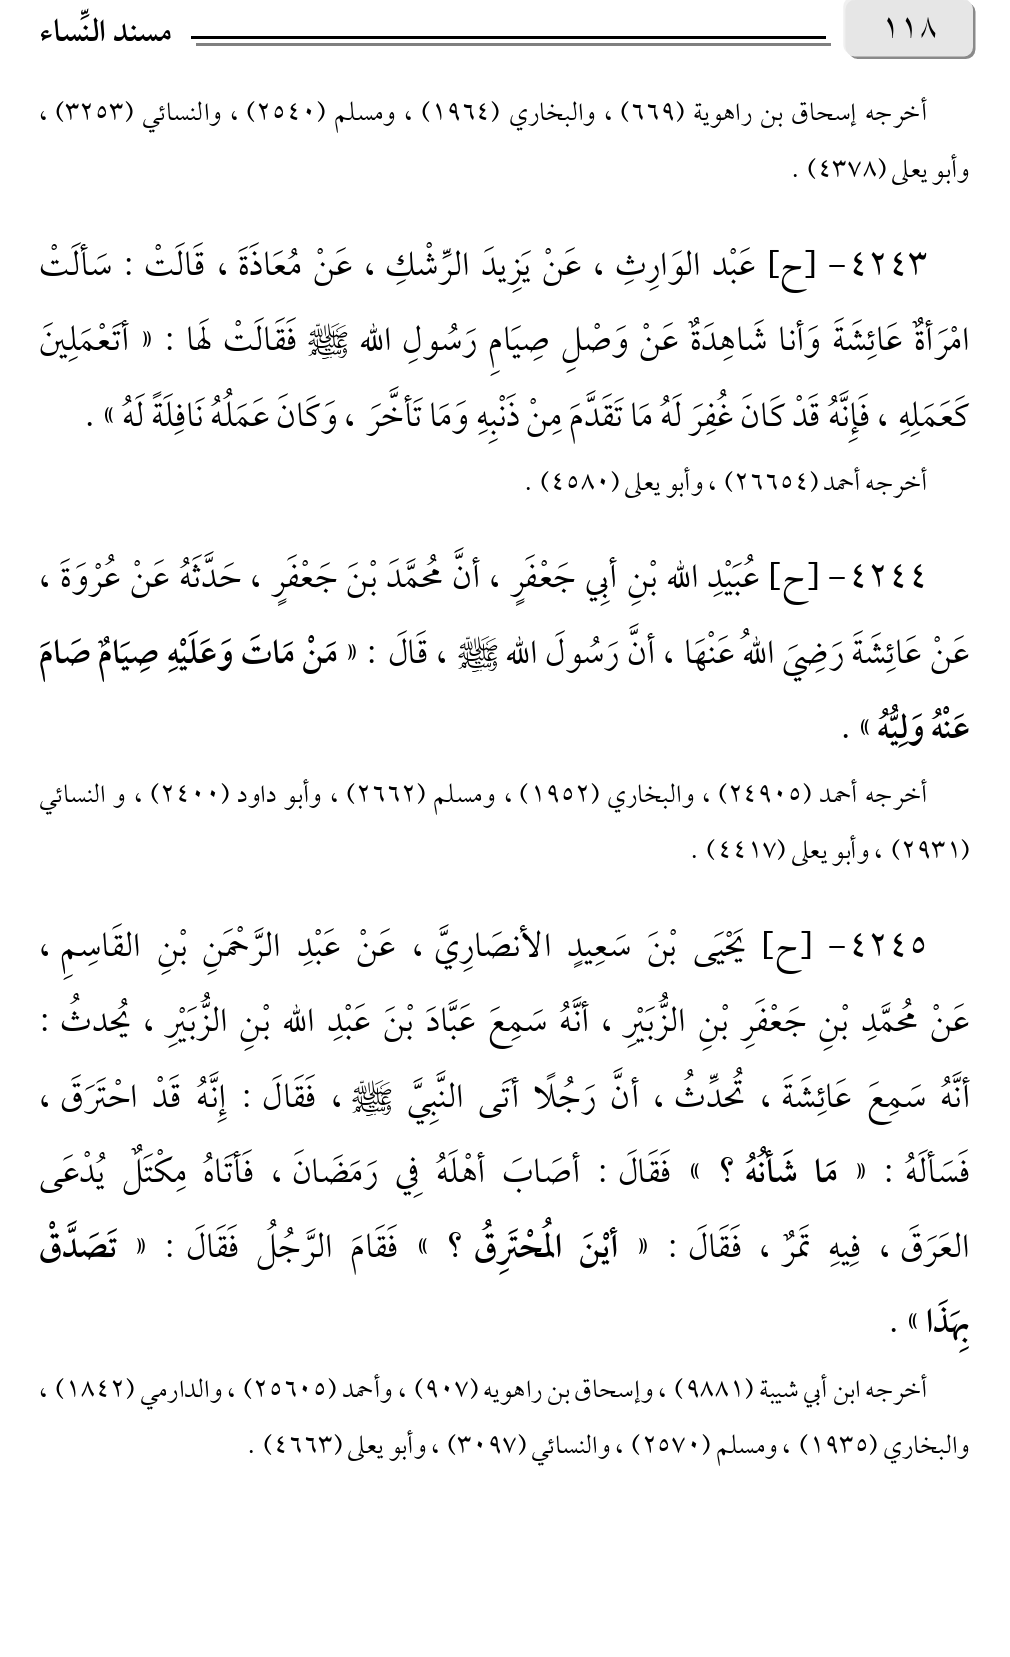 ١١٨
مسند النِّساء
أخرجه إسحاق بن راهوية (٦٦٩) ، والبخاري (١٩٦٤) ، ومسلم (٢٥٤٠) ، والنسائي (٣٢٥٣) ،
وأبو يعلى (٤٣٧٨) .
٤٢٤٣- [ح] عَبْد الوَارِثِ ، عَنْ يَزِيدَ الرِّشْكِ ، عَنْ مُعَاذَةَ ، قَالَتْ : سَألَتْ
امْرَأةٌ عَائِشَةَ وَأنا شَاهِدَةٌ عَنْ وَصْلِ صِيَامِ رَسُولِ الله ﷺ فَقَالَتْ لَها : « أتَعْمَلِينَ
كَعَمَلِهِ ، فَإِنَّهُ قَدْ كَانَ غُفِرَ لَهُ مَا تَقَدَّمَ مِنْ ذَنْبِهِ وَمَا تَأخَّرَ ، وَكَانَ عَمَلُهُ نَافِلَةً لَهُ » .
أخرجه أحمد (٢٦٦٥٤) ، وأبو يعلى (٤٥٨٠) .
٤٢٤٤- [ح] عُبَيْدِ الله بْنِ أبِي جَعْفَرٍ ، أنَّ مُحمَّدَ بْنَ جَعْفَرٍ ، حَدَّثَهُ عَنْ عُرْوَةَ ،
عَنْ عَائِشَةَ رَضِيَ اللهُ عَنْهَا ، أنَّ رَسُولَ الله ﷺ ، قَالَ : « مَنْ مَاتَ وَعَلَيْهِ صِيَامٌ صَامَ
عَنْهُ وَلِيُّهُ » .
أخرجه أحمد (٢٤٩٠٥) ، والبخاري (١٩٥٢) ، ومسلم (٢٦٦٢) ، وأبو داود (٢٤٠٠) ، و النسائي
(٢٩٣١) ، وأبو يعلى (٤٤١٧) .
٤٢٤٥- [ح] يَحْيَى بْنَ سَعِيدٍ الأنصَارِيَّ ، عَنْ عَبْدِ الرَّحْمَنِ بْنِ القَاسِمِ ،
عَنْ مُحمَّدِ بْنِ جَعْفَرِ بْنِ الزُّبَيْرِ ، أنَّهُ سَمِعَ عَبَّادَ بْنَ عَبْدِ الله بْنِ الزُّبَيْرِ ، يُحدثُ :
أنَّهُ سَمِعَ عَائِشَةَ ، تُحدِّثُ ، أنَّ رَجُلًا أتَى النَّبِيَّ ﷺ ، فَقَالَ : إِنَّهُ قَدْ احْتَرَقَ ،
فَسَألَهُ : « مَا شَأنُهُ ؟ » فَقَالَ : أصَابَ أهْلَهُ فِي رَمَضَانَ ، فَأتَاهُ مِكْتَلٌ يُدْعَى
العَرَقَ ، فِيهِ تَمرٌ ، فَقَالَ : « أيْنَ المُحْتَرِقُ ؟ » فَقَامَ الرَّجُلُ فَقَالَ : « تَصَدَّقْ
بِهَذَا » .
أخرجه ابن أبي شيبة (٩٨٨١) ، وإسحاق بن راهويه (٩٠٧) ، وأحمد (٢٥٦٠٥) ، والدارمي (١٨٤٢) ،
والبخاري (١٩٣٥) ، ومسلم (٢٥٧٠) ، والنسائي (٣٠٩٧) ، وأبو يعلى (٤٦٦٣) .